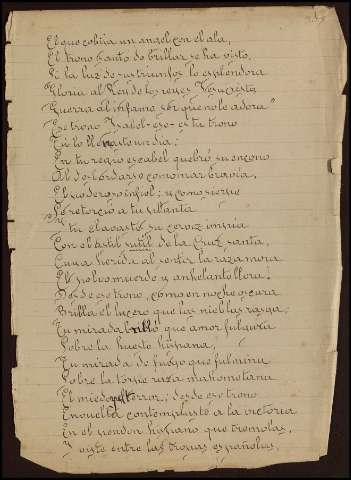 El que cobija un angel con el ala,
El trono santo do brillar se ha visto,
Si la luz de sus triunfos lo esplendora
"Gloria al Rey de los reyes Jesucristo
Guerra al infame ser que no le adora"
Ese trono Isabel - ese - es tu trono
Tú lo llenaste un dia;
En tu regio escabel quebró su encono
Al desbordarse como mar bravía,
El poderoso infiel; y como sierpe
Se retorció a tu planta
Y tú clavaste su cerviz impía
Con el astil sutil de la Cruz santa,
Cuya herida al sentir la raza mora
El polvo muerde y anhelante llora!
Desde ese trono, como en noche oscura
Brilla el lucero que las nieblas rasga;
Tu mirada brilló que amor fulgura
Sobre la hueste hispana,
Tu mirada de fuego que fulmina
Sobre la torpe raza mahometana
El miedo y el terror; desde ese trono
Envuelta contemplaste á la victoria
En el pendon hispano que tremolas,
Y viste entre las tropas españolas,